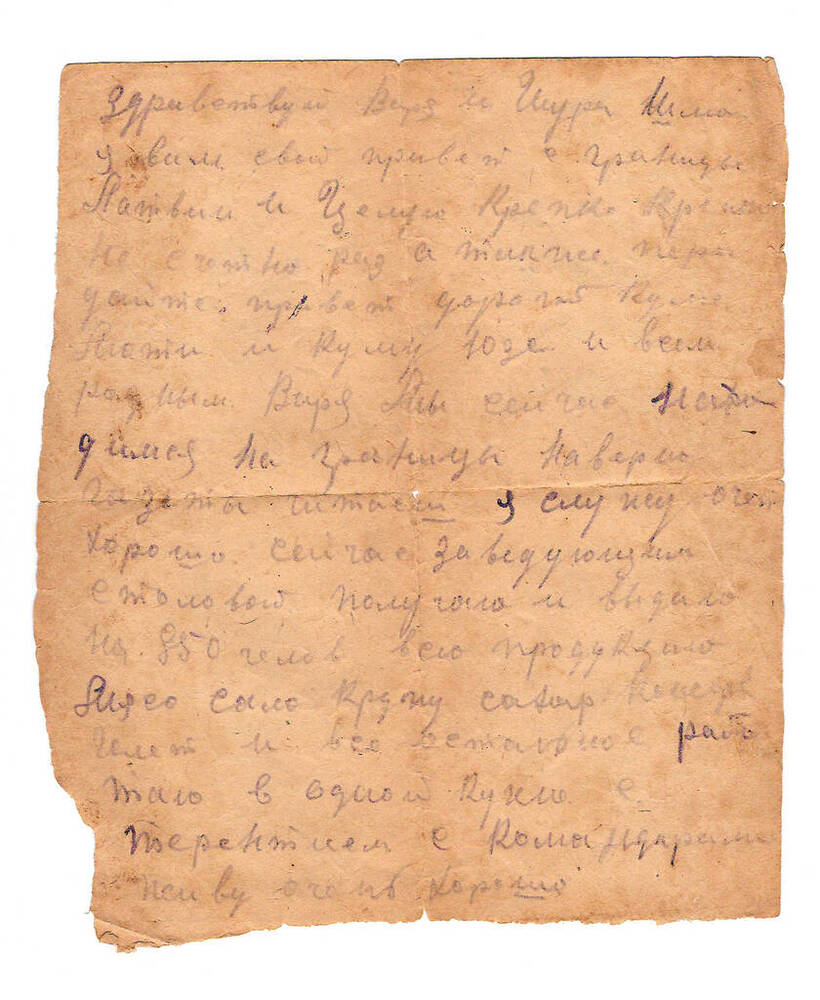 Здравствуй Варя и Шура Шлю
я вам свой привет с границы
Латвии и Целую Крепко Крепко
не счетно раз а также пере
дайте привет дорогой Куме
Моти и Куму Юде и всем
родным Варя Мы сейчас нахо
димся на границы наверно
газеты читаеш я служу очен
хорошо сейчас заведующим
столовой получаю и выдаю
на 850 челов всю продукцию
Мясо сало Крупу сахар Консерв
и все остальное рабо
таю в одной Кухне с
Терентием с Командирами
живу очень хорошо